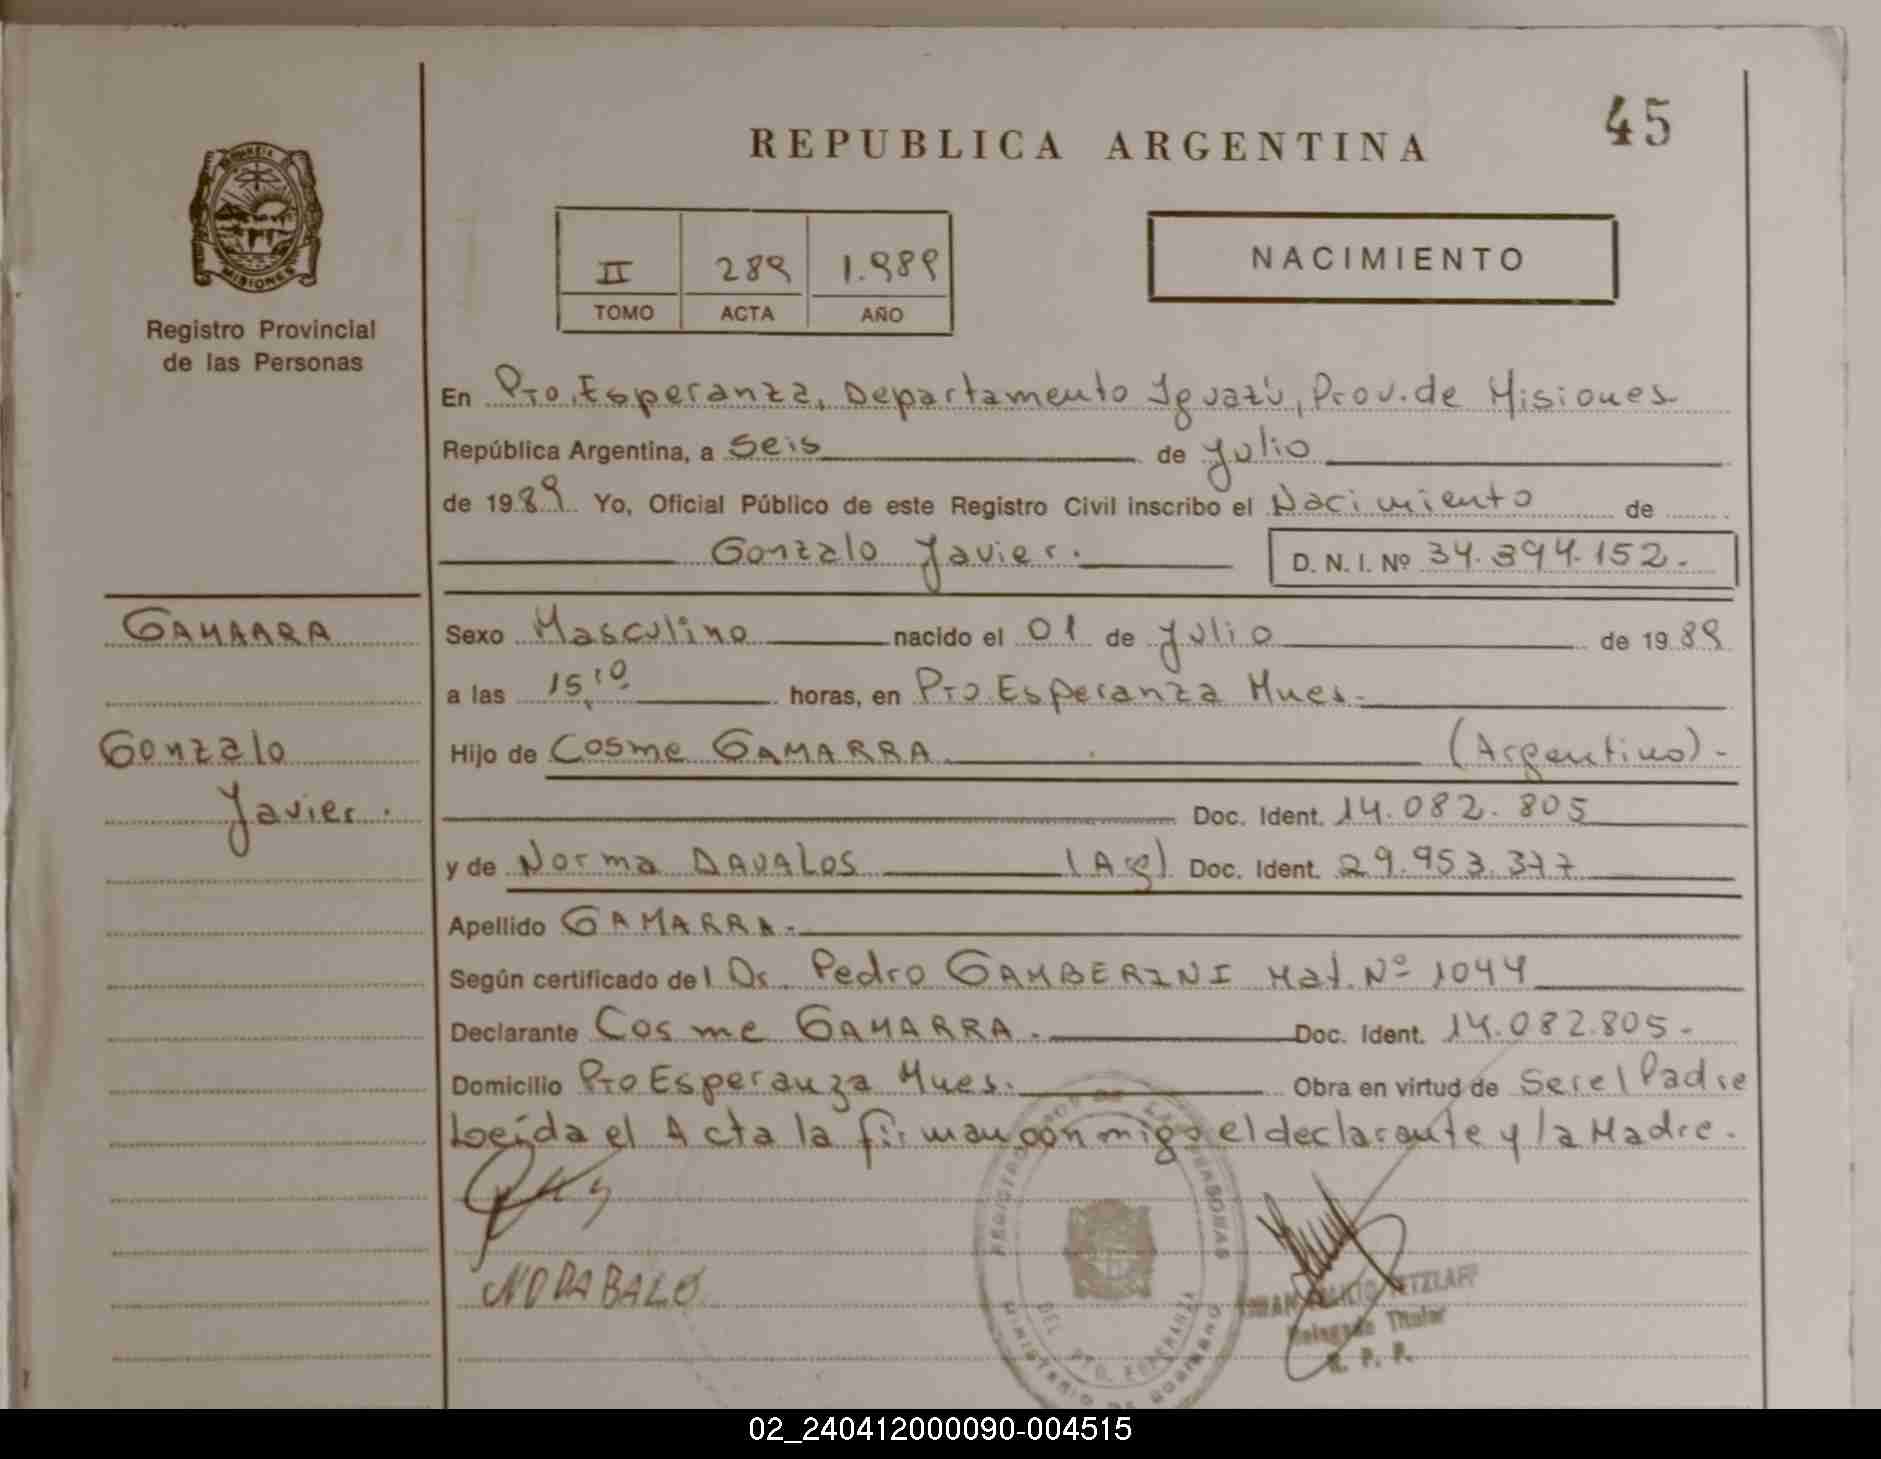 45
REPUBLICA ARGENTINA
MISIONES
Registro Provincial
de las Personas
II 289 1.989
TOMO ACTA AÑO
NACIMIENTO
En Pto. Esperanza, Departamento Iguazú, Prov. de Misiones
República Argentina, a seis de Julio
de 1989 Yo, Oficial Público de este Registro Civil inscribo el Nacimiento de
Gonzalo Javier. D. N. I. Nº 34.394.152.-
GAMARRA
Sexo Masculino nacido el 01 de Julio de 1989
a las 15,10 horas, en Pto. Esperanza Mnes.
Gonzalo
Hijo de Cosme GAMARRA (Argentino)-
Javier.
Doc. Ident. 14.082.805
y de Norma DAVALOS (Arg) Doc. Ident. 29.953.377
Apellido GAMARRA.-
Según certificado del Dr. Pedro GAMBERINI Mat. Nº 1044
Declarante Cosme GAMARRA.- Doc. Ident. 14.082.805.-
Domicilio Pto Esperanza Mnes. Obra en virtud de ser el Padre
Leída el Acta la firman conmigo el declarante y la Madre.
NODABALO
REGISTRADOR DE LAS PERSONAS
DEL PTO. ESPERANZA
MINISTERIO DE GOBIERNO
Delegado Titular
R. P. P.
02_240412000090-004515